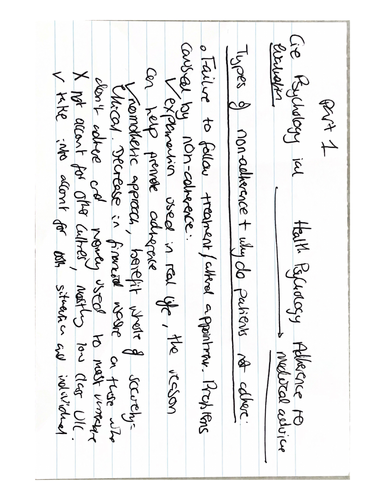 Part 1
Cie Psychology Health Psychology Adherence to medical advice
Evaluation
Types of non-adherence + why do patients not adhere:
• Failure to follow treatment / attend appointmnt. Problems
caused by non-adherence:
✓ explanation used in real life, the reason
can help promote adherence
✓ nomothetic approach, benefit whole of society-
ethical. Decrease in financial waste on those who
don't adhere and money used to most
X not account for other cultures, mostly low class UK.
✓ take into account for both situation and individual